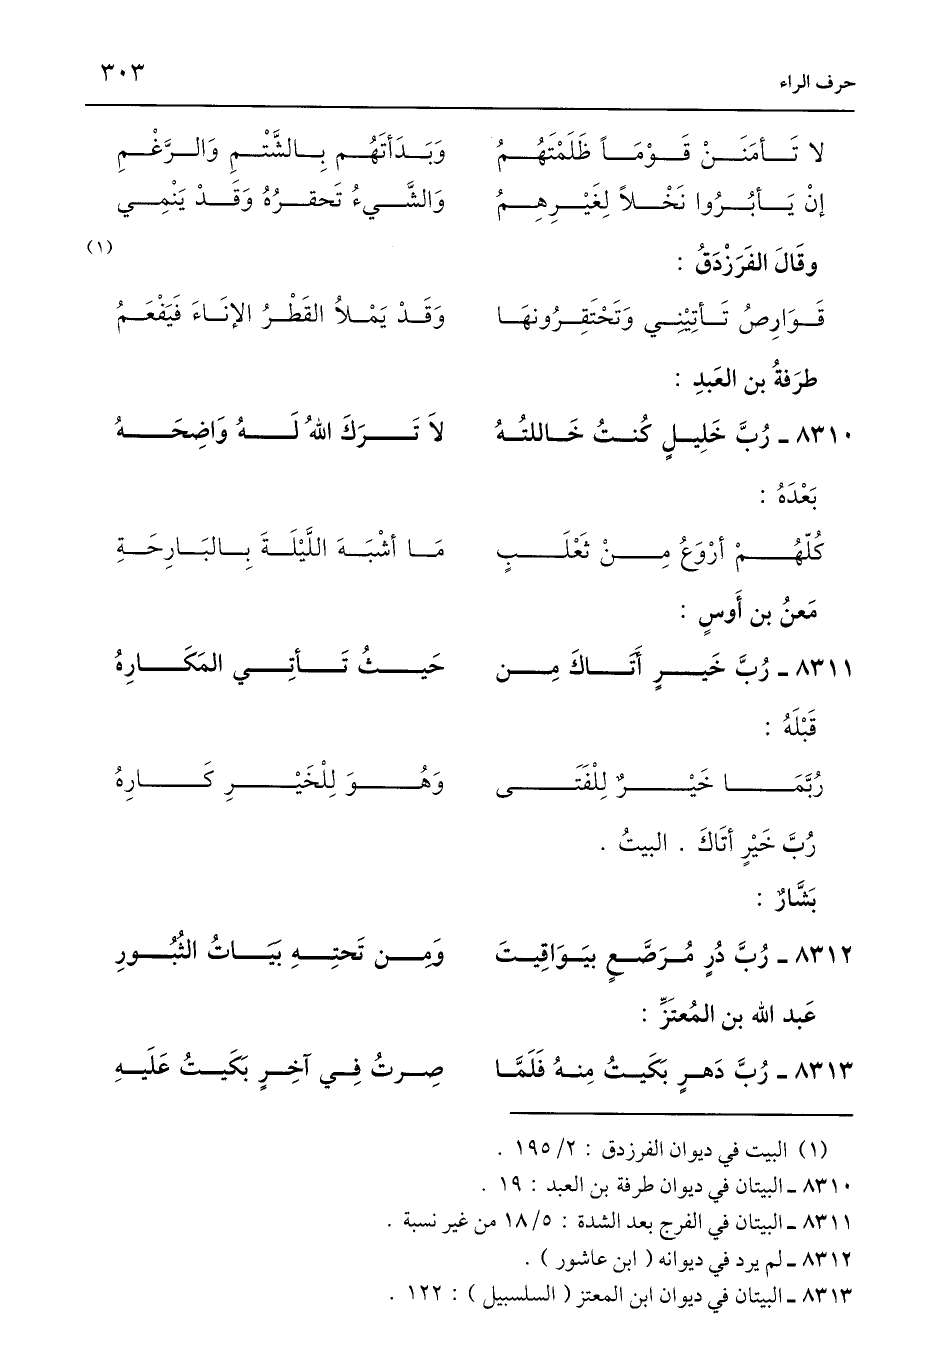 حرف الراء ٣٠٣
لا تَأمَنَنْ قَوْمَاً ظَلَمْتَهُمُ وَبَدَأتَهُم بِالشَّتْمِ وَالرَّغْمِ
إنْ يَأبُرُوا نَخْلاً لِغَيْرِهِمُ وَالشَّيءُ تَحقرُهُ وَقَدْ يَنْمِي
وقَالَ الفَرَزْدَقُ : (١)
قَوَارِصُ تَأتِيْنِي وَتَحْتَقِرُونهَا وَقَدْ يَمْلأُ القَطْرُ الإنَاءَ فَيَفْعَمُ
طرَفةُ بن العَبدِ :
٨٣١٠ ـ رُبَّ خَلِيلٍ كُنتُ خَاللتهُ لاَ تَرَكَ اللهُ لَهُ وَاضِحَهُ
بَعْدَهُ :
كُلّهُمْ أرْوَغُ مِنْ ثَعْلَبٍ مَا أشْبَهَ اللَّيْلَةَ بِالبَارِحَةِ
مَعنُ بن أَوسٍ :
٨٣١١ ـ رُبَّ خَيرٍ أَتَاكَ مِن حَيثُ تَأتِي المَكَارِهُ
قَبْلَهُ :
رُبَّمَا خَيْرٌ لِلْفَتَى وَهُوَ لِلْخَيْرِ كَارِهُ
رُبَّ خَيْرٍ أتَاكَ . البيتُ .
بَشَّارٌ :
٨٣١٢ ـ رُبَّ دُرٍ مُرَصَّعٍ بيَوَاقِيتَ وَمِن تَحتِهِ بَيَاتُ الثُّبُورِ
عَبد الله بن المُعتَزِّ :
٨٣١٣ ـ رُبَّ دَهرٍ بَكَيتُ مِنهُ فَلَمَّا صِرتُ فِي آخِرٍ بَكَيتُ عَلَيهِ
(١) البيت في ديوان الفرزدق : ٢/ ١٩٥ .
٨٣١٠ ـ البيتان في ديوان طرفة بن العبد : ١٩ .
٨٣١١ ـ البيتان في الفرج بعد الشدة : ٥/ ١٨ من غير نسبة .
٨٣١٢ ـ لم يرد في ديوانه ( ابن عاشور ) .
٨٣١٣ ـ البيتان في ديوان ابن المعتز ( السلسبيل ) : ١٢٢ .